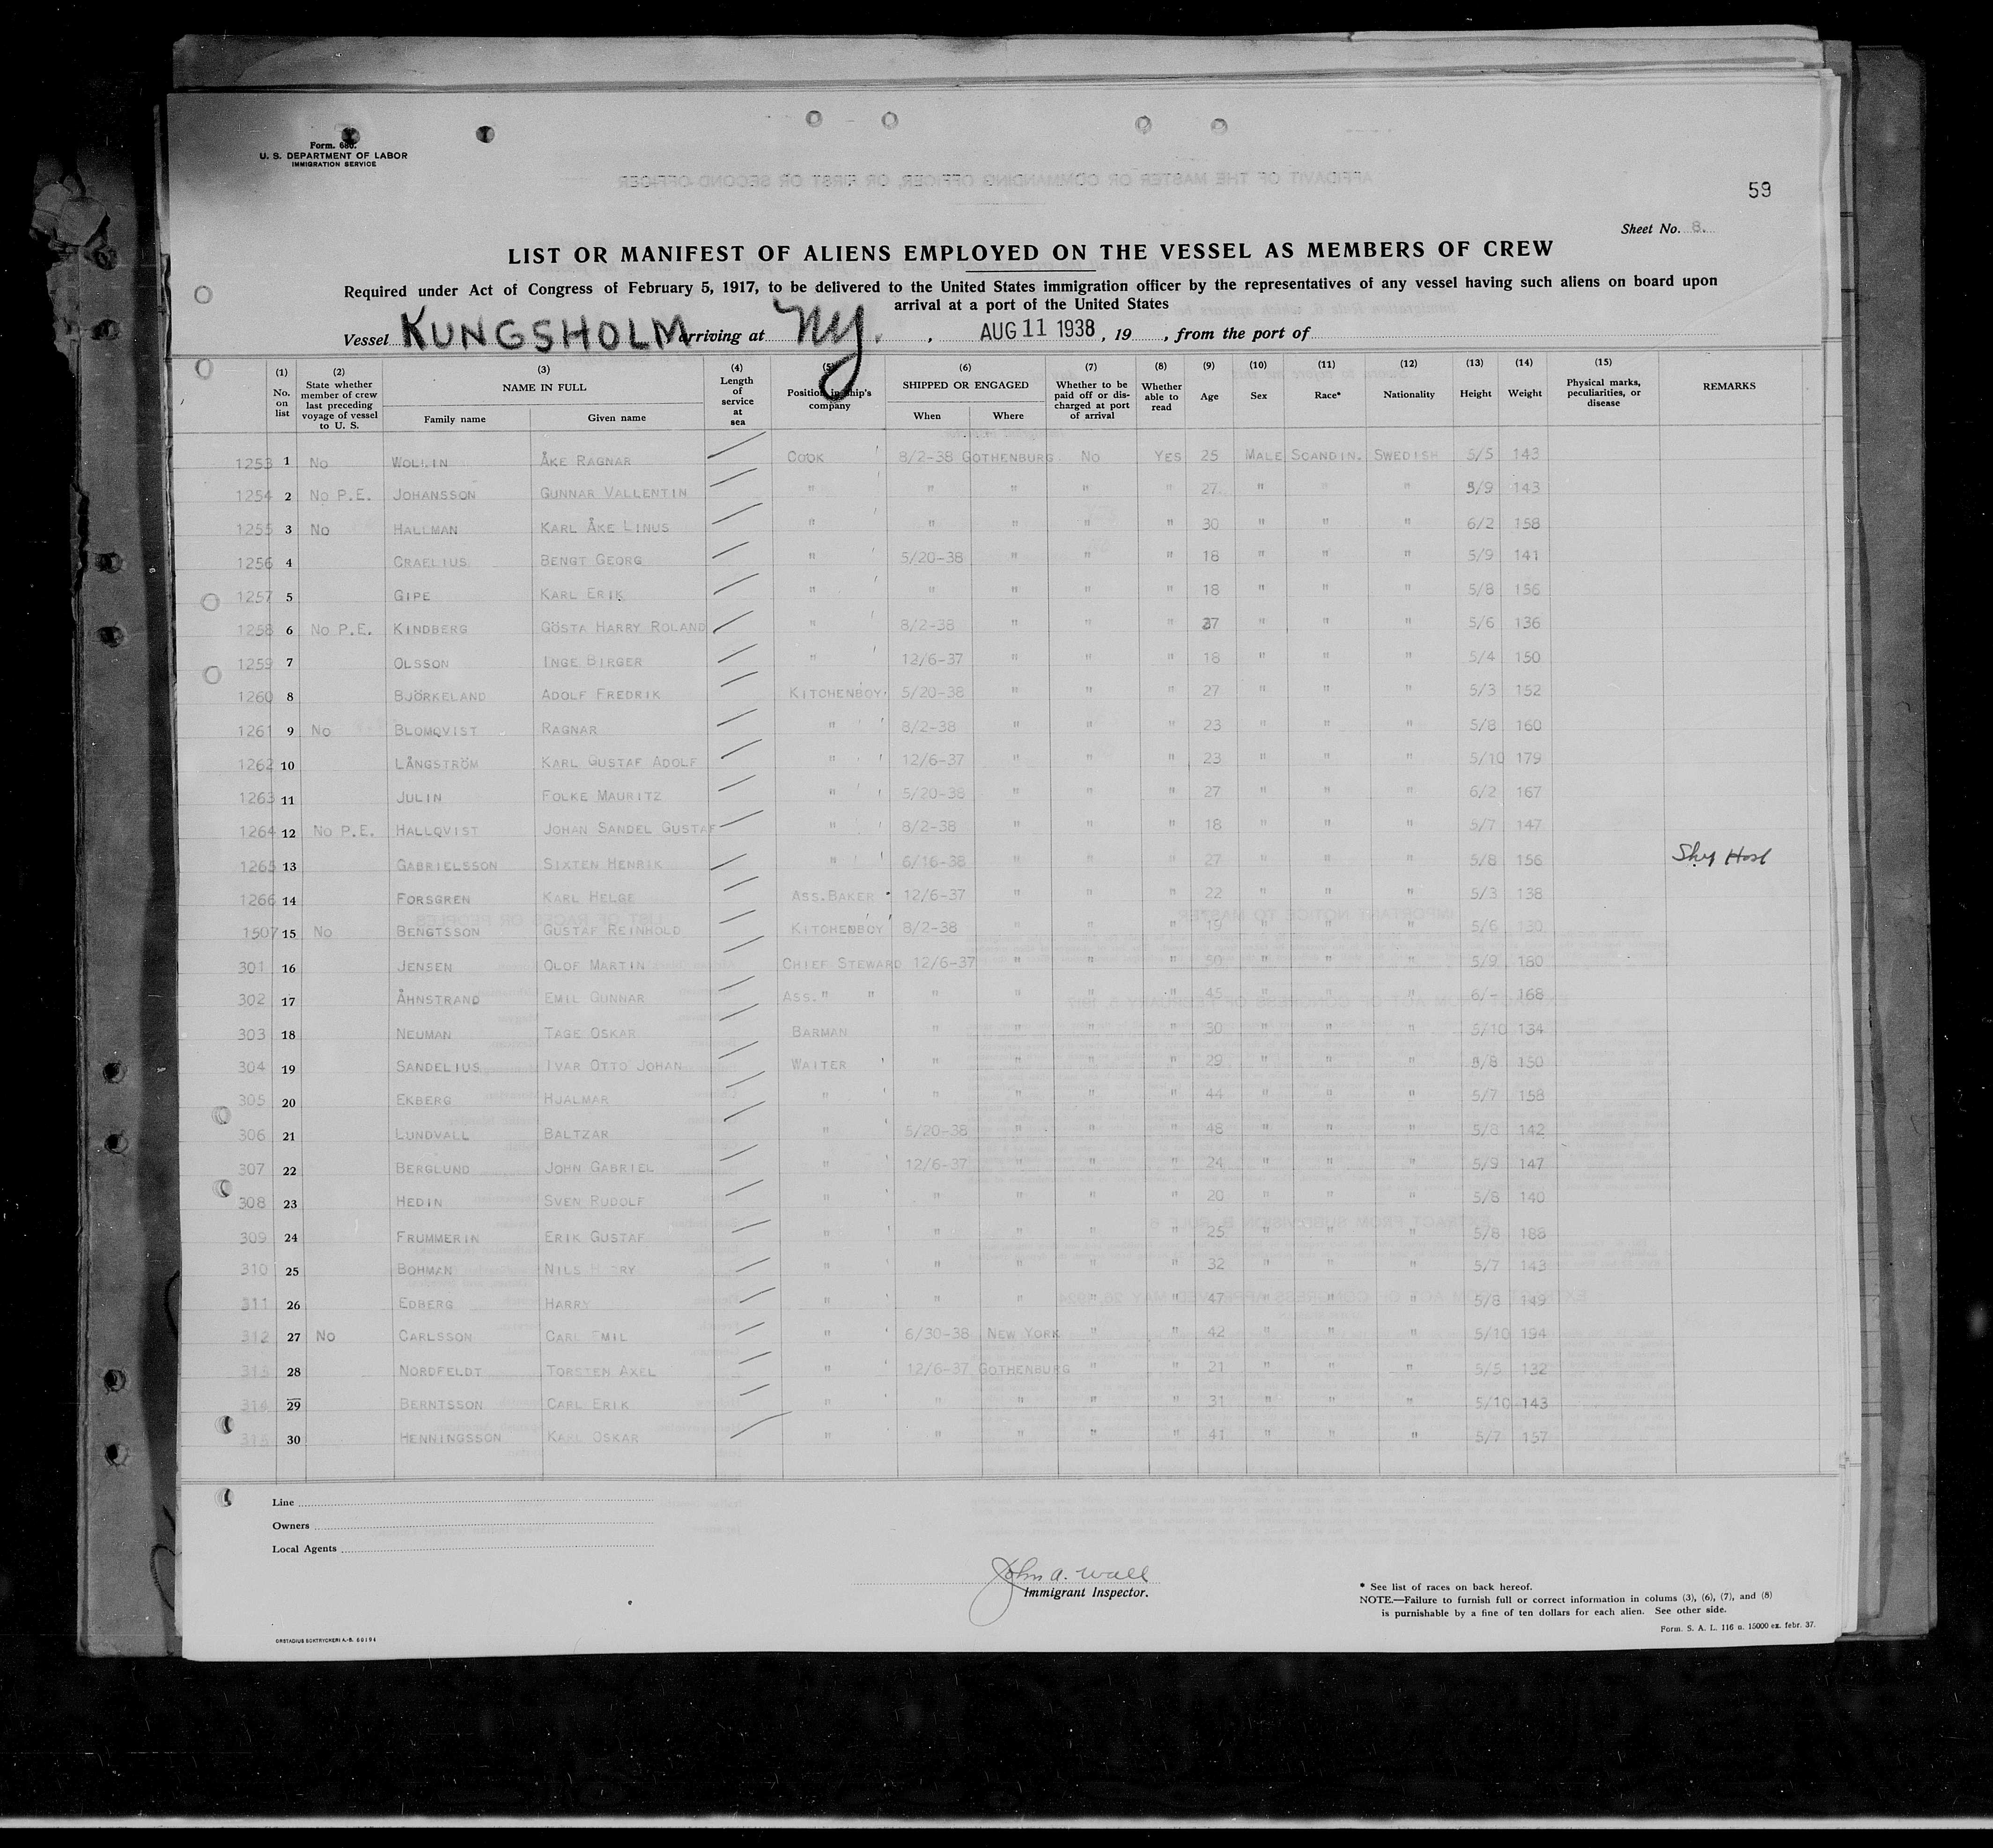 Form. 680.
U. S. DEPARTMENT OF LABOR
IMMIGRATION SERVICE
59
Sheet No. 8.
LIST OR MANIFEST OF ALIENS EMPLOYED ON THE VESSEL AS MEMBERS OF CREW
Required under Act of Congress of February 5, 1917, to be delivered to the United States immigration officer by the representatives of any vessel having such aliens on board upon
arrival at a port of the United States
Vessel KUNGSHOLM arriving at NY. , AUG 11 1938 , 19 , from the port of
(1) No. on list (2) State whether member of crew last preceding voyage of vessel to U. S. (3) NAME IN FULL Family name Given name (4) Length of service at sea (5) Position in ship's company (6) SHIPPED OR ENGAGED When Where (7) Whether to be paid off or discharged at port of arrival (8) Whether able to read (9) Age (10) Sex (11) Race* (12) Nationality (13) Height (14) Weight (15) Physical marks, peculiarities, or disease REMARKS
1253 1 No WOLLIN ÅKE RAGNAR COOK 8/2-38 GOTHENBURG No YES 25 MALE SCANDIN. SWEDISH 5/5 143
1254 2 No P.E. JOHANSSON GUNNAR VALLENTIN " " " " " 27 " " " 5/9 143
1255 3 No HALLMAN KARL ÅKE LINUS " " " " " 30 " " " 6/2 158
1256 4 CRAELIUS BENGT GEORG " 5/20-38 " " " 18 " " " 5/9 141
1257 5 GIPE KARL ERIK " " " " " 18 " " " 5/8 156
1258 6 No P.E. KINDBERG GÖSTA HARRY ROLAND " 8/2-38 " " " 37 " " " 5/6 136
1259 7 OLSSON INGE BIRGER " 12/6-37 " " " 18 " " " 5/4 150
1260 8 BJÖRKELAND ADOLF FREDRIK KITCHENBOY 5/20-38 " " " 27 " " " 5/3 152
1261 9 No BLOMQVIST RAGNAR " 8/2-38 " " " 23 " " " 5/8 160
1262 10 LÅNGSTRÖM KARL GUSTAF ADOLF " 12/6-37 " " " 23 " " " 5/10 179
1263 11 JULIN FOLKE MAURITZ " 5/20-38 " " " 27 " " " 6/2 167
1264 12 No P.E. HALLQVIST JOHAN SANDEL GUSTAF " 8/2-38 " " " 18 " " " 5/7 147
1265 13 GABRIELSSON SIXTEN HENRIK " 6/16-38 " " " 27 " " " 5/8 156
1266 14 FORSGREN KARL HELGE ASS.BAKER 12/6-37 " " " 22 " " " 5/3 138
1507 15 No BENGTSSON GUSTAF REINHOLD KITCHENBOY 8/2-38 " " " 19 " " " 5/6 130
301 16 JENSEN OLOF MARTIN CHIEF STEWARD 12/6-37 " " " 50 " " " 5/9 180
302 17 ÅHNSTRAND EMIL GUNNAR ASS. " " " " " " 45 " " " 6/- 168
303 18 NEUMAN TAGE OSKAR BARMAN " " " " 30 " " " 5/10 134
304 19 SANDELIUS IVAR OTTO JOHAN WAITER " " " " 29 " " " 5/8 150
305 20 EKBERG HJALMAR " " " " " 44 " " " 5/7 158
306 21 LUNDVALL BALTZAR " 5/20-38 " " " 48 " " " 5/8 142
307 22 BERGLUND JOHN GABRIEL " 12/6-37 " " " 24 " " " 5/9 147
308 23 HEDIN SVEN RUDOLF " " " " " 20 " " " 5/8 140
309 24 FRUMMERIN ERIK GUSTAF " " " " " 25 " " " 5/8 188
310 25 BOHMAN NILS HARRY " " " " " 32 " " " 5/7 143
311 26 EDBERG HARRY " " " " " 47 " " " 5/8 149
312 27 No CARLSSON CARL EMIL " 6/30-38 NEW YORK " " 42 " " " 5/10 194
313 28 NORDFELDT TORSTEN AXEL " 12/6-37 GOTHENBURG " " 21 " " " 5/5 132
314 29 BERNTSSON CARL ERIK " " " " " 31 " " " 5/10 143
315 30 HENNINGSSON KARL OSKAR " " " " " 41 " " " 5/7 157
Line
Owners
Local Agents
John A. Wall
Immigrant Inspector.
* See list of races on back hereof.
NOTE.—Failure to furnish full or correct information in colums (3), (6), (7), and (8)
is punishable by a fine of ten dollars for each alien. See other side.
Form. S. A. L. 116 n. 15000 ex. febr. 37.
ORSTADIUS BOKTRYCKERI A.-B. 50194